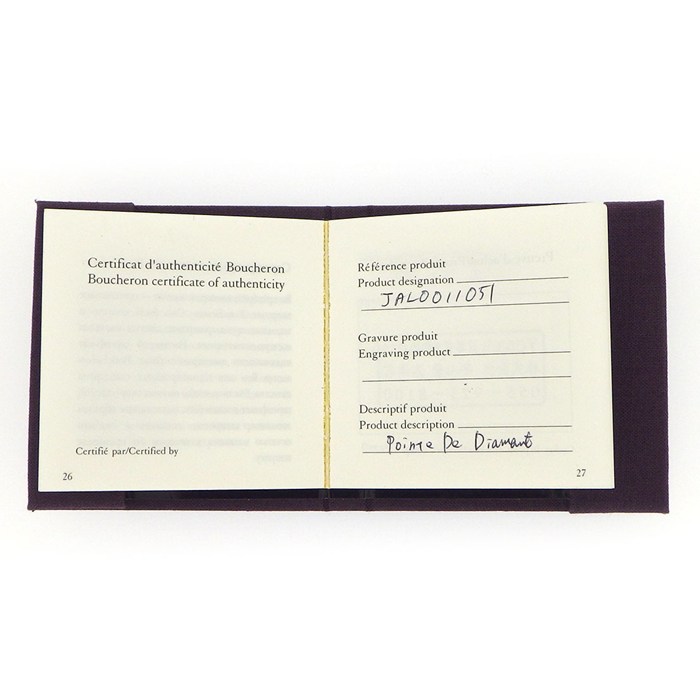 Certificat d'authenticité Boucheron
Boucheron certificate of authenticity
Certifié par/Certified by
26
Référence produit
Product designation
JAL0011051
Gravure produit
Engraving product
Descriptif produit
Product description
Pointe De Diamant
27